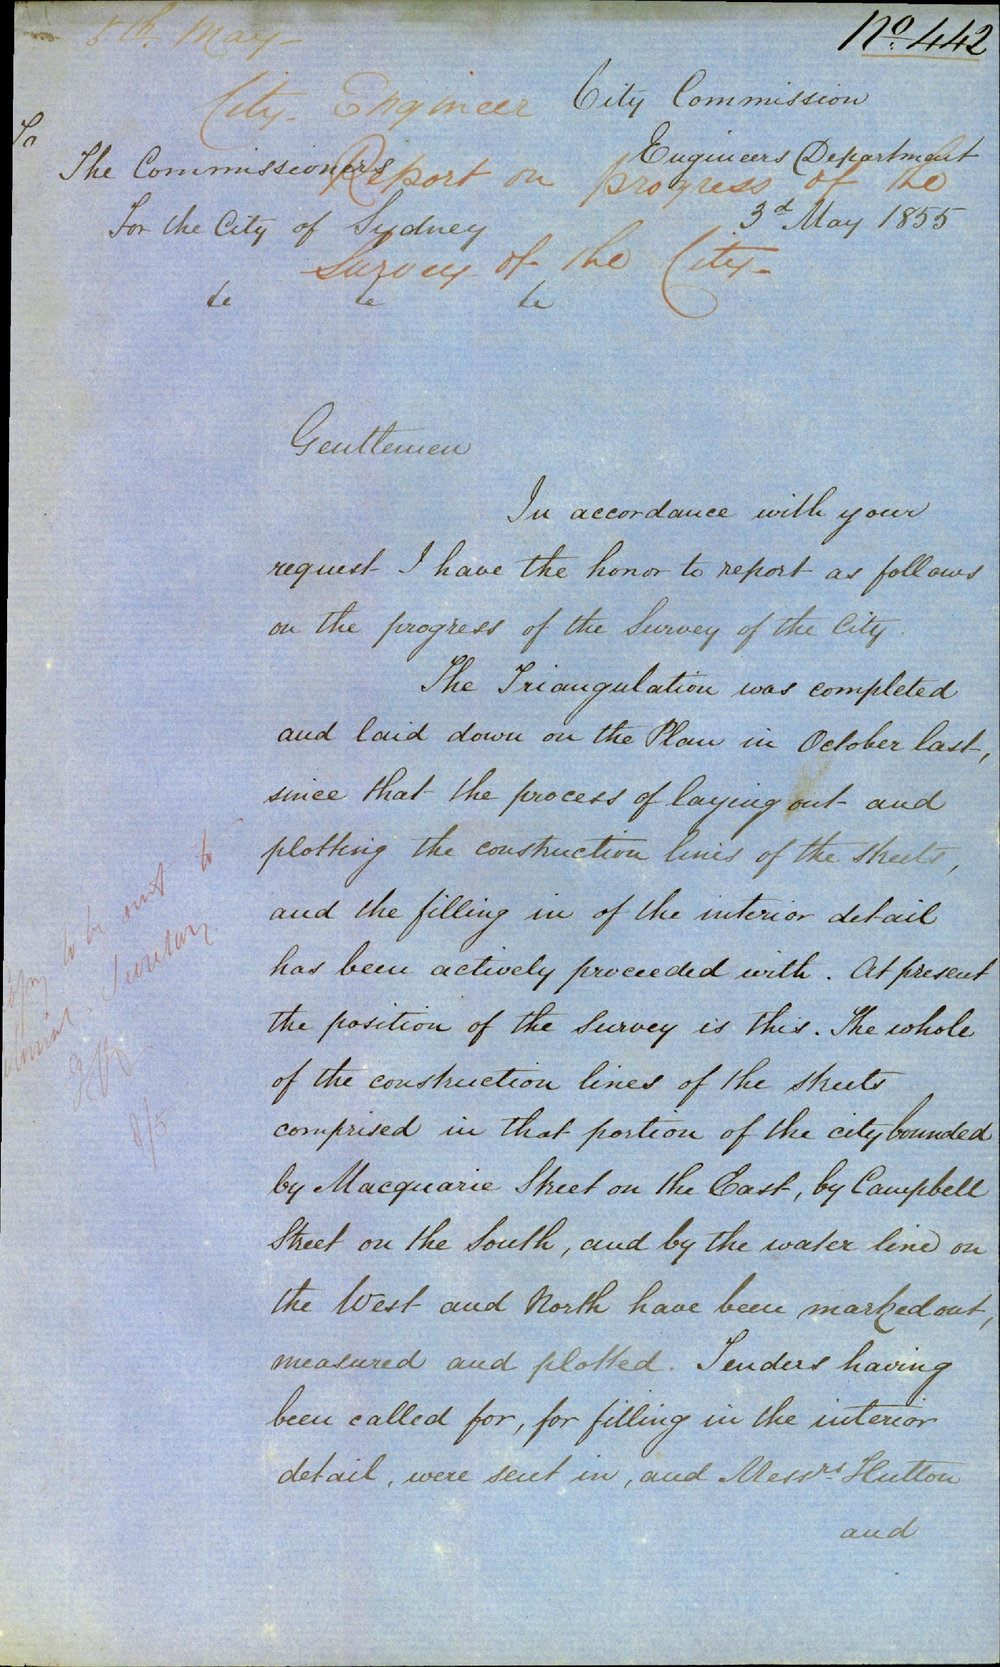 5th. May -
No. 442
City. Engineer
City Commission
To
Engineers Department
The Commissioners
Report on progress of the
3d May 1855
For the City of Sydney
Survey of the City -
&c &c &c
Gentlemen
In accordance with your
request I have the honor to report as follows
on the progress of the Survey of the City.
The Triangulation was completed
and laid down on the Plan in October last,
since that the process of laying out and
plotting the construction lines of the streets,
and the filling in of the interior detail
has been actively proceeded with. At present
the position of the Survey is this. The whole
of the construction lines of the streets
comprised in that portion of the city bounded
by Macquarie Street on the East, by Campbell
Street on the South, and by the water line on
the West and North have been marked out,
measured and plotted. Tenders having
been called for, for filling in the interior
detail, were sent in, and Messrs. Hutton
and
to be sent to
Secretary.
8/5